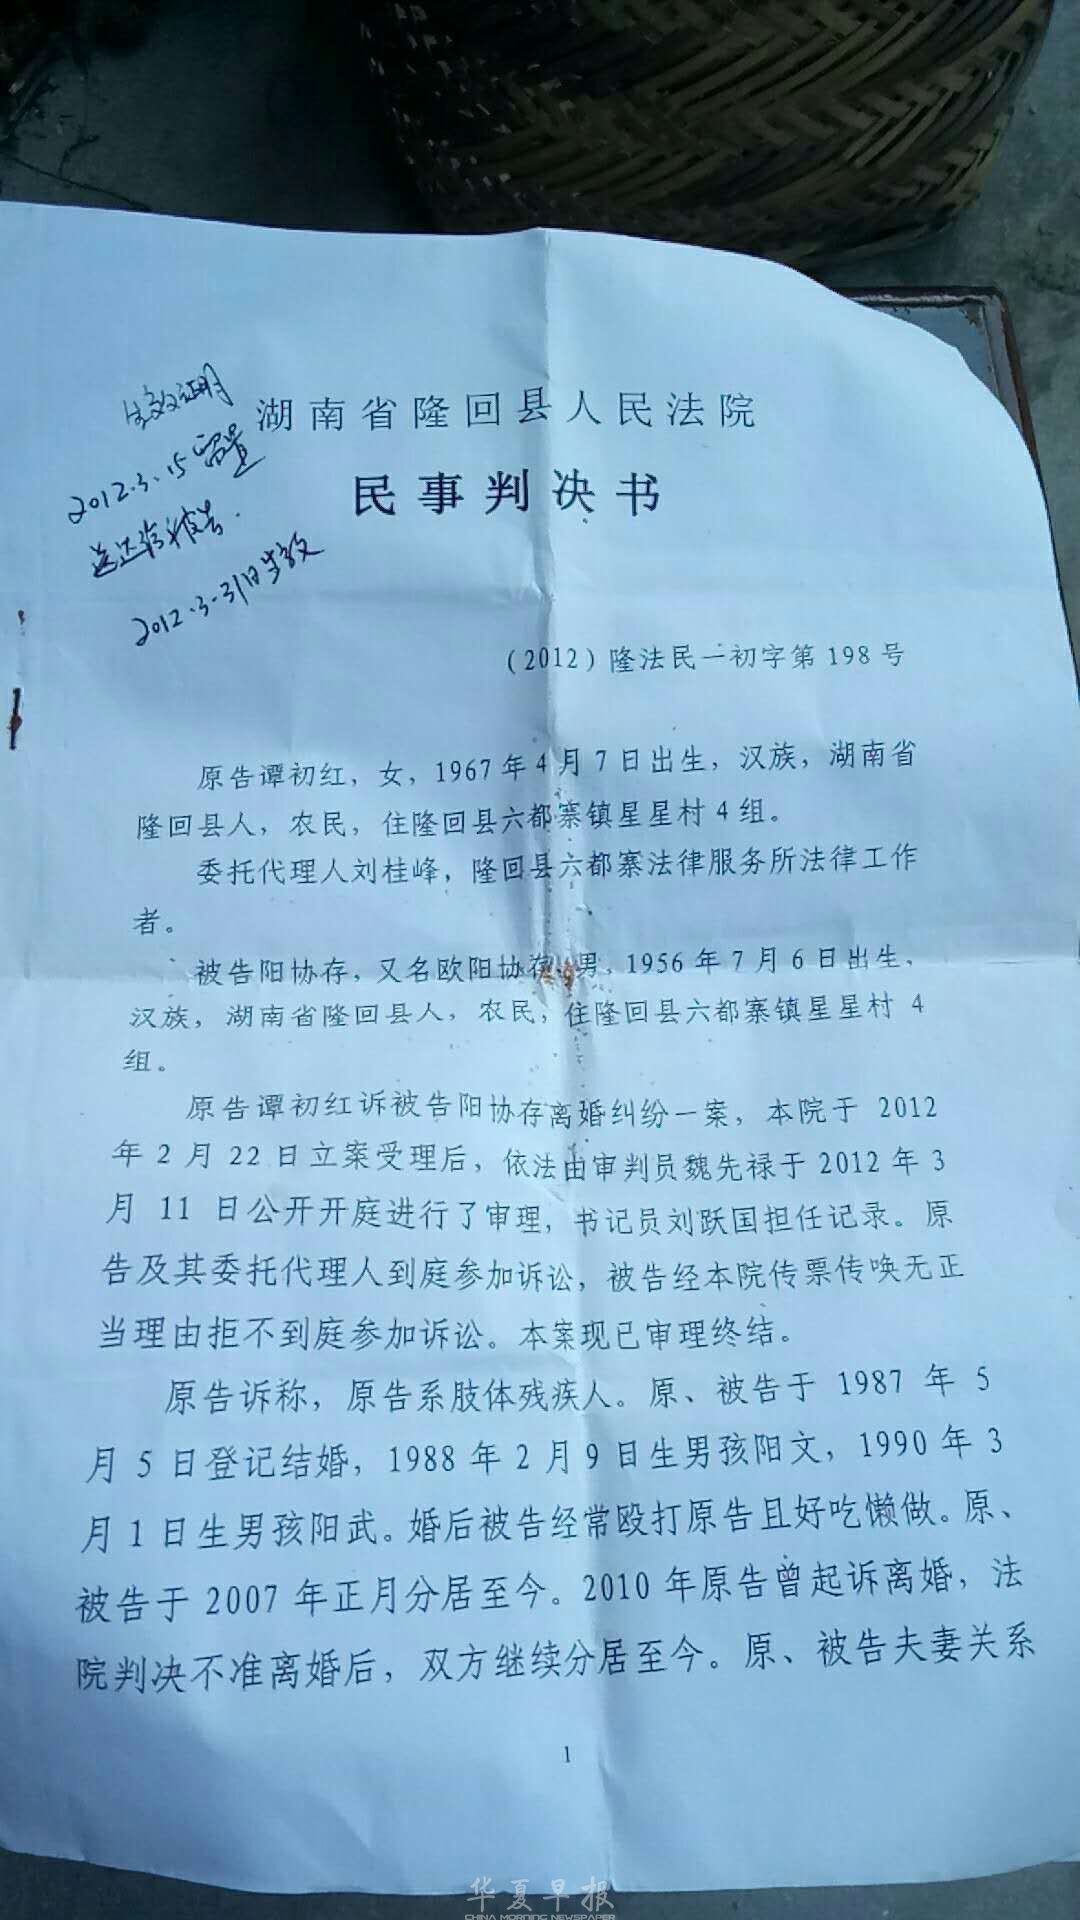 生效证明
2012.3.15留置
送达给被告.
2012.3.31日生效
湖南省隆回县人民法院
民事判决书
（2012）隆法民一初字第198号
原告谭初红，女，1967年4月7日出生，汉族，湖南省
隆回县人，农民，住隆回县六都寨镇星星村4组。
委托代理人刘桂峰，隆回县六都寨法律服务所法律工作
者。
被告阳协存，又名欧阳协存，男，1956年7月6日出生，
汉族，湖南省隆回县人，农民，住隆回县六都寨镇星星村4
组。
原告谭初红诉被告阳协存离婚纠纷一案，本院于2012
年2月22日立案受理后，依法由审判员魏先禄于2012年3
月11日公开开庭进行了审理，书记员刘跃国担任记录。原
告及其委托代理人到庭参加诉讼，被告经本院传票传唤无正
当理由拒不到庭参加诉讼。本案现已审理终结。
原告诉称，原告系肢体残疾人。原、被告于1987年5
月5日登记结婚，1988年2月9日生男孩阳文，1990年3
月1日生男孩阳武。婚后被告经常殴打原告且好吃懒做。原、
被告于2007年正月分居至今。2010年原告曾起诉离婚，法
院判决不准离婚后，双方继续分居至今。原、被告夫妻关系
1
华夏早报
CHINA MORNING NEWSPAPER